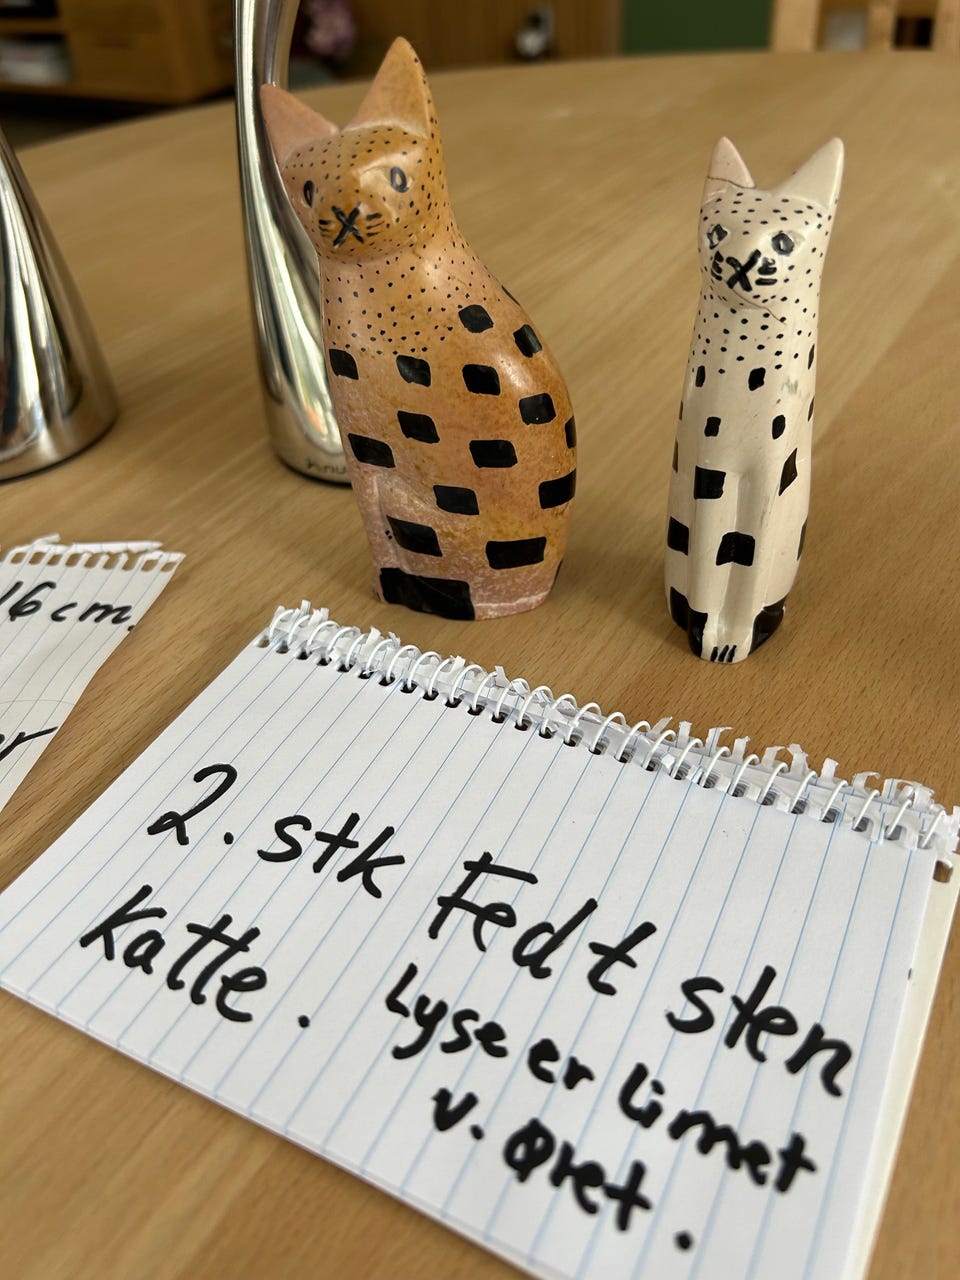 16 cm.
2. stk Fedt sten
Katte.
Lyse er limet
v. Øret.